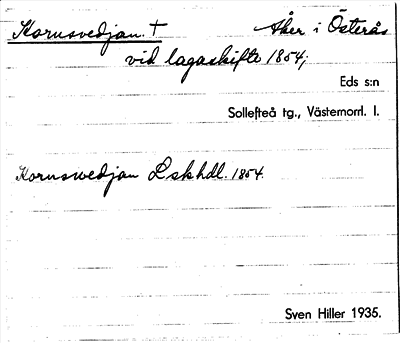 Kornsvedjan † Åker i Österås
vid lagaskifte 1854;
Eds s:n
Sollefteå tg., Västernorrl. l.
Kornswedjan Lskhdl. 1854.
Sven Hiller 1935.